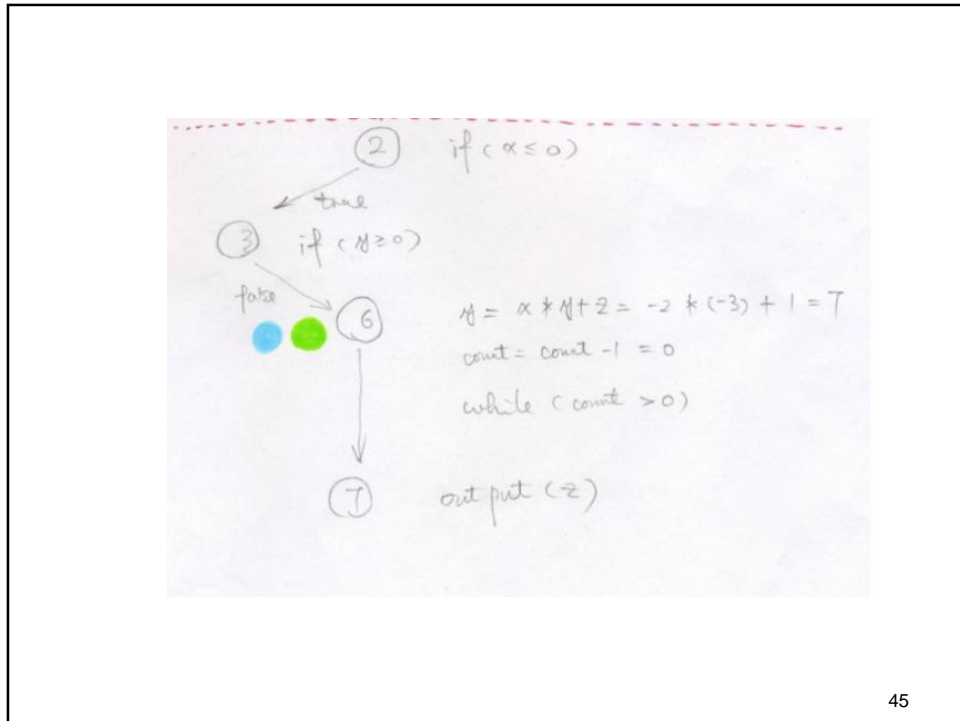 2 if (x ≤ 0)
true
3 if (y ≥ 0)
false
6 y = x * y + z = -2 * (-3) + 1 = 7
count = count - 1 = 0
while (count > 0)
7 output (z)
45